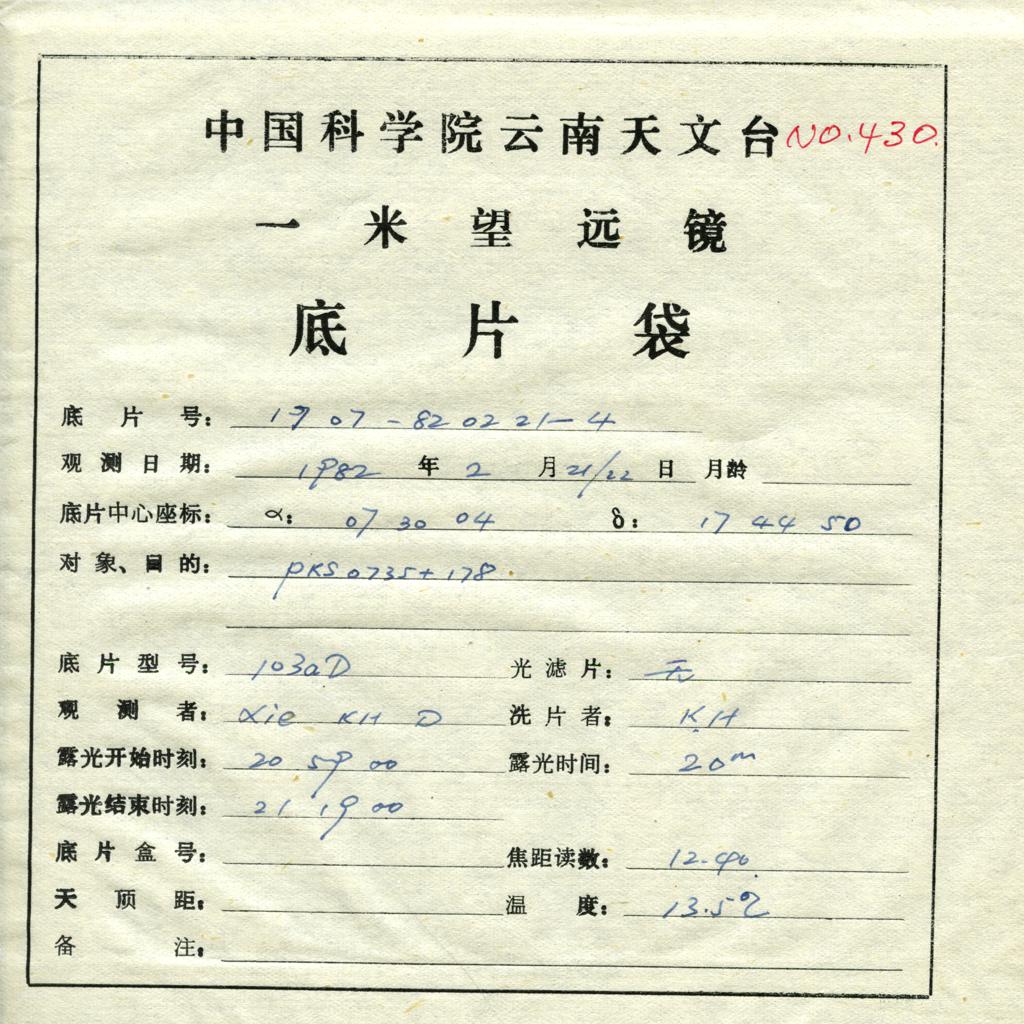 中国科学院云南天文台 NO.430.
一米望远镜
底片袋
底片号: 1907-820221-4
观测日期: 1982年2月21/22日 月龄
底片中心座标: α: 07 30 04 δ: 17 44 50
对象、目的: PKS0735+178
底片型号: 103aD 光滤片: 无
观测者: Xie KH D 洗片者: KH
露光开始时刻: 20 59 00 露光时间: 20m
露光结束时刻: 21 19 00
底片盒号: 焦距读数: 12.90
天顶距: 温度: 13.5℃
备注: